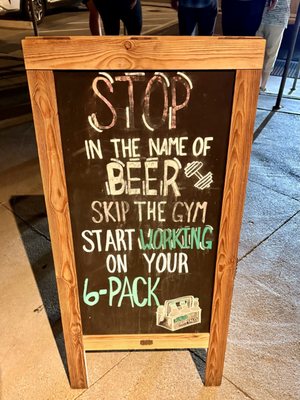 STOP
IN THE NAME OF
BEER
SKIP THE GYM
START WORKING
ON YOUR
6-PACK